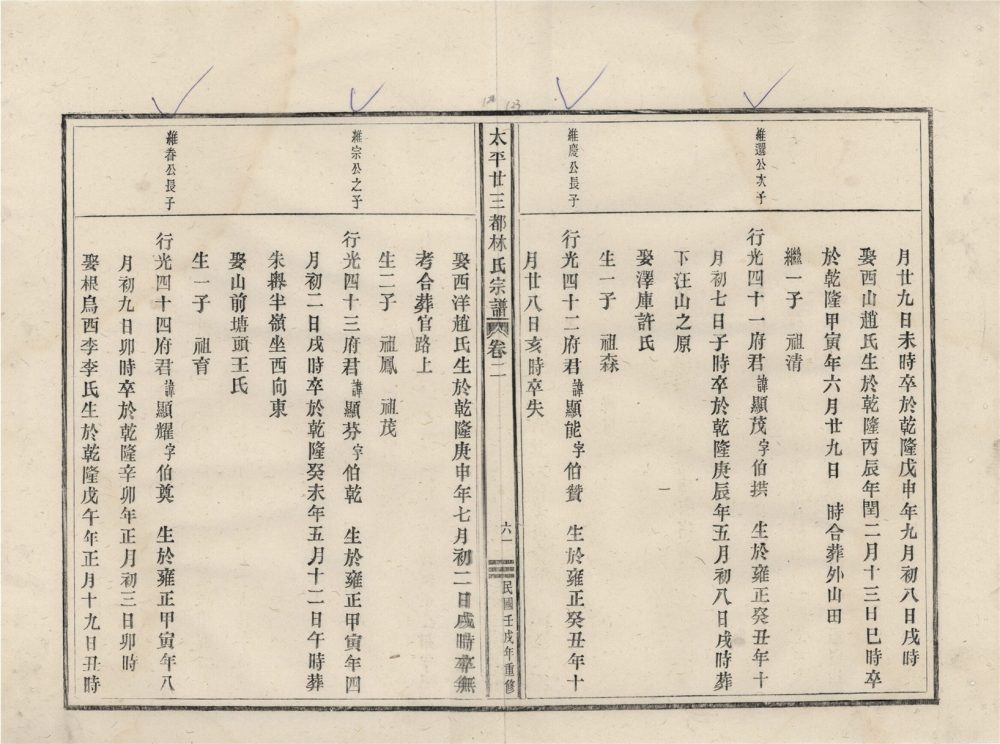 月廿九日未時卒於乾隆戊申年九月初八日戌時
娶西山趙氏生於乾隆丙辰年閏二月十三日巳時卒
於乾隆甲寅年六月廿九日　時合葬外山田
繼一子　祖清
維選公次子
行光四十一府君諱顯茂字伯拱　生於雍正癸丑年十
月初七日子時卒於乾隆庚辰年五月初八日戌時葬
下汪山之原
娶澤庫許氏
生一子　祖森
維慶公長子
行光四十二府君諱顯能字伯贊　生於雍正癸丑年十
月廿八日亥時卒失
太平廿三都林氏宗譜　卷二　六一　民國壬戌年重修
娶西洋趙氏生於乾隆庚申年七月初二日戌時卒無
考合葬官路上
生二子　祖鳳　祖茂
維宗公之子
行光四十三府君諱顯芬字伯乾　生於雍正甲寅年四
月初二日戌時卒於乾隆癸未年五月十二日午時葬
朱嶴半嶺坐西向東
娶山前塘頭王氏
生一子　祖育
維春公長子
行光四十四府君諱顯耀字伯奠　生於雍正甲寅年八
月初九日卯時卒於乾隆辛卯年正月初三日卯時
娶根鳥西李李氏生於乾隆戊午年正月十九日丑時